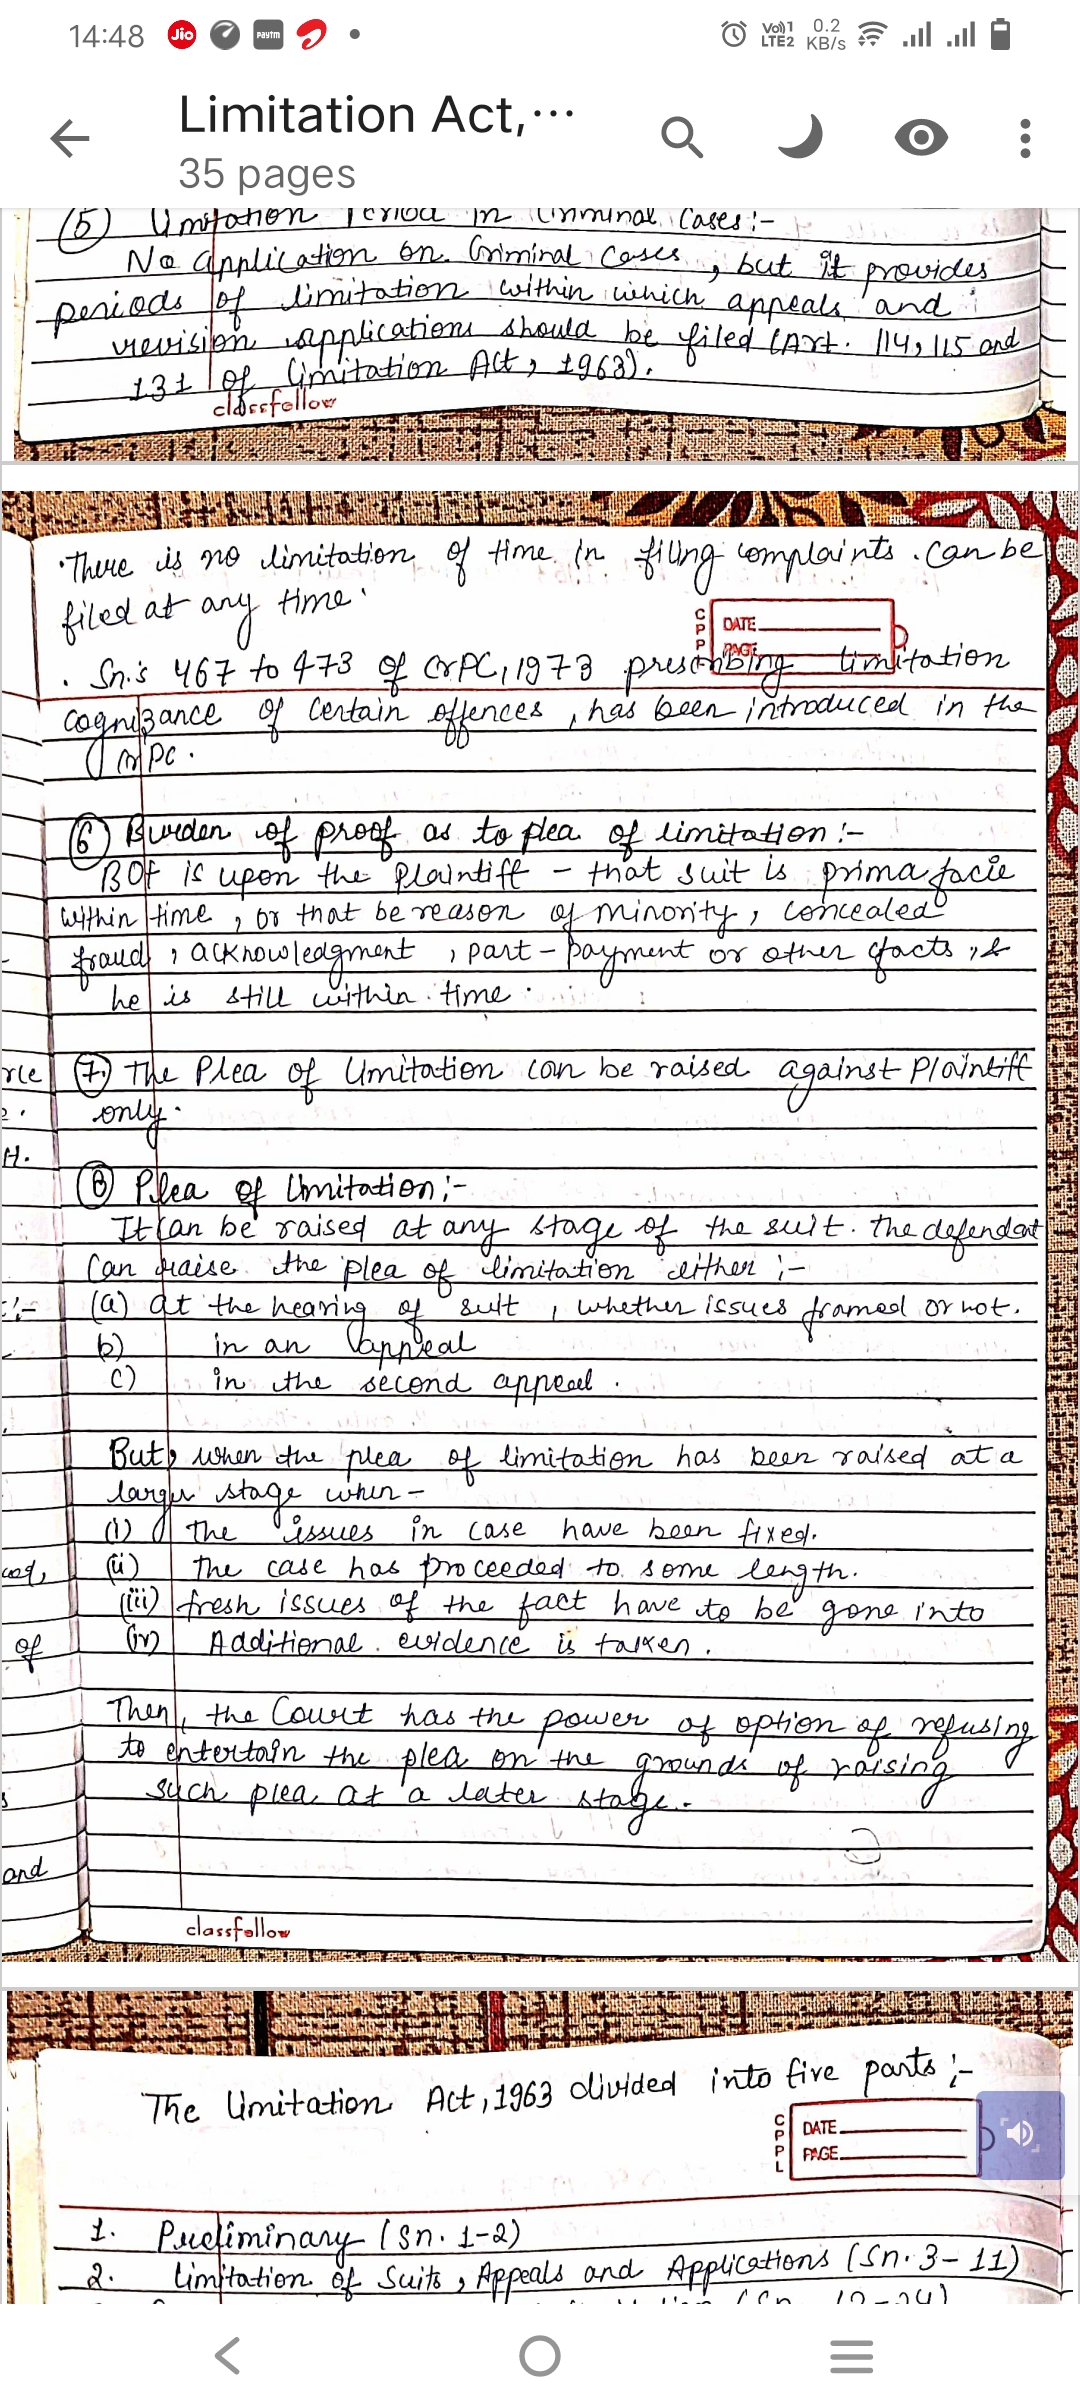 14:48
Jio
Paytm
Vo)) 1
LTE2
0.2
KB/s
Limitation Act,...
35 pages
(5) Limitation Period in Criminal Cases :-
No application on Criminal Cases, but it provides
periods of limitation within which appeals and
revision applications should be filed (Art. 114, 115 and
131 of Limitation Act, 1963).
classfellow
• There is no limitation of time in filing complaints. Can be
filed at any time.
C P P
DATE
PAGE
• Sn.s 467 to 473 of CrPC, 1973 prescribing limitation
cognizance of certain offences, has been introduced in the
CrPC.
(6) Burden of proof as to plea of limitation :-
BOP is upon the Plaintiff - that suit is prima facie
within time, or that be reason of minority, concealed
fraud, acknowledgment, part - payment or other facts, &
he is still within time.
(7.) The Plea of Limitation can be raised against Plaintiff
only.
H.
(8) Plea of Limitation :-
It can be raised at any stage of the suit. The defendant
can raise the plea of limitation either :-
(a) at the hearing of suit, whether issues framed or not.
b) in an appeal
c) in the second appeal.
But, when the plea of limitation has been raised at a
larger stage when -
(i) the issues in case have been fixed.
(ii) the case has proceeded to some length.
(iii) fresh issues of the fact have to be gone into
(iv) Additional evidence is taken.
of
Then, the Court has the power of option of refusing
to entertain the plea on the grounds of raising
such plea at a later stage.
and
classfellow
The Limitation Act, 1963 divided into five parts :-
C P P L
DATE
PAGE
1. Preliminary (Sn. 1-2)
2. Limitation of Suits, Appeals and Applications (Sn. 3 - 11)